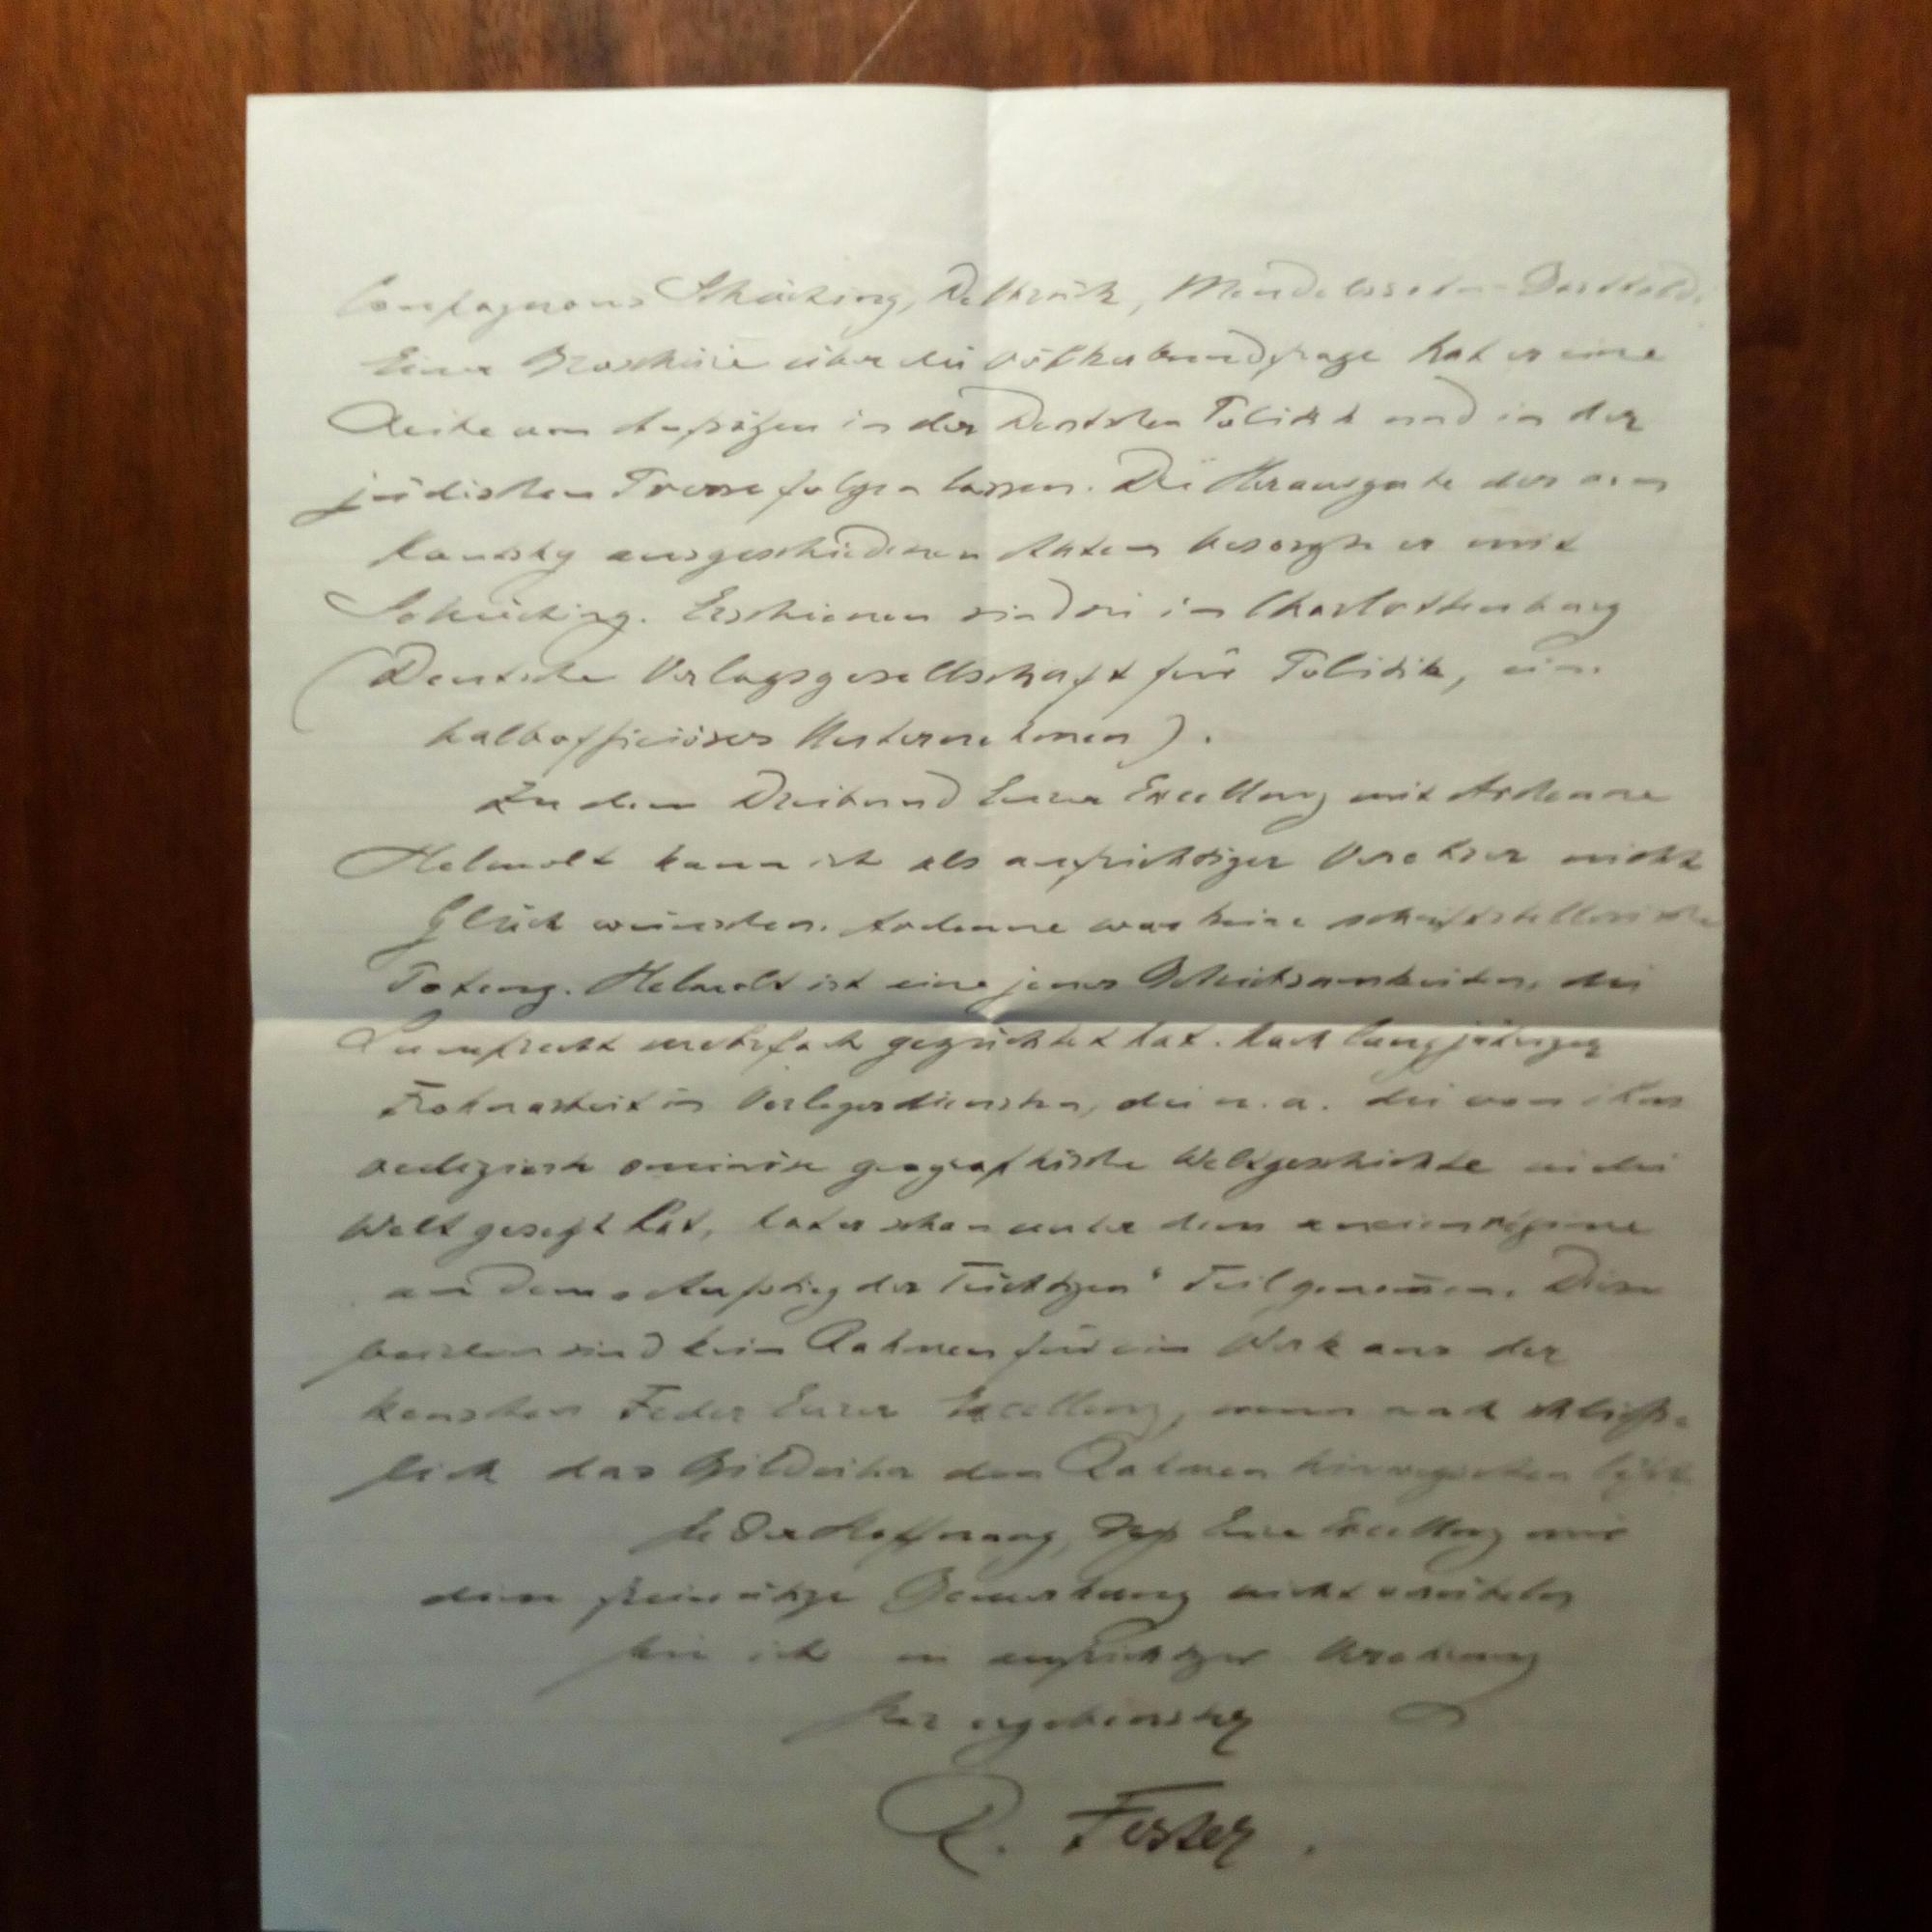 Compagnons Schücking, Delbrück, Mendelssohn-Bartholdi.
Einer Broschüre über die Völkerbundfrage hat er eine
Reihe von Aufsätzen in der Deutschen Politik und in der
jüdischen Presse folgen lassen. Die Herausgabe der von
Kautsky ausgeschiedenen Akten besorgte er mit
Schücking. Erschienen sind sie in Charlottenburg
(Deutsche Verlagsgesellschaft für Politik, ein
halbofficiöses Unternehmen).
Zu dem Dreibund Eurer Excellenz mit Ardenne
Helmolt kann ich als aufrichtiger Verehrer nicht
Glück wünschen. Ardenne war keine schriftstellerische
Potenz. Helmolt ist eine jener Betriebsamkeiten, die
Lamprecht mehrfach gezüchtet hat. Nach langjähriger
Frohnarbeit in Verlegerdiensten, die u. a. die von ihm
redigierte ominöse geographische Weltgeschichte in die
Welt gesetzt hat, hat er schon unter dem ancien régime
an dem „Aufstieg der Tüchtigen“ Teil genom̄en. Diese
beiden sind kein Rahmen für ein Werk aus der
Feder Eurer Excellenz, wenn auch schließ-
lich das Bild über den Rahmen hinwegsehen läßt.
In der Hoffnung, daß Eure Excellenz mir
diese freimütige Bemerkung nicht verübeln
bin ich in aufrichtiger Verehrung
Ihr ergebenster
R. Fester.